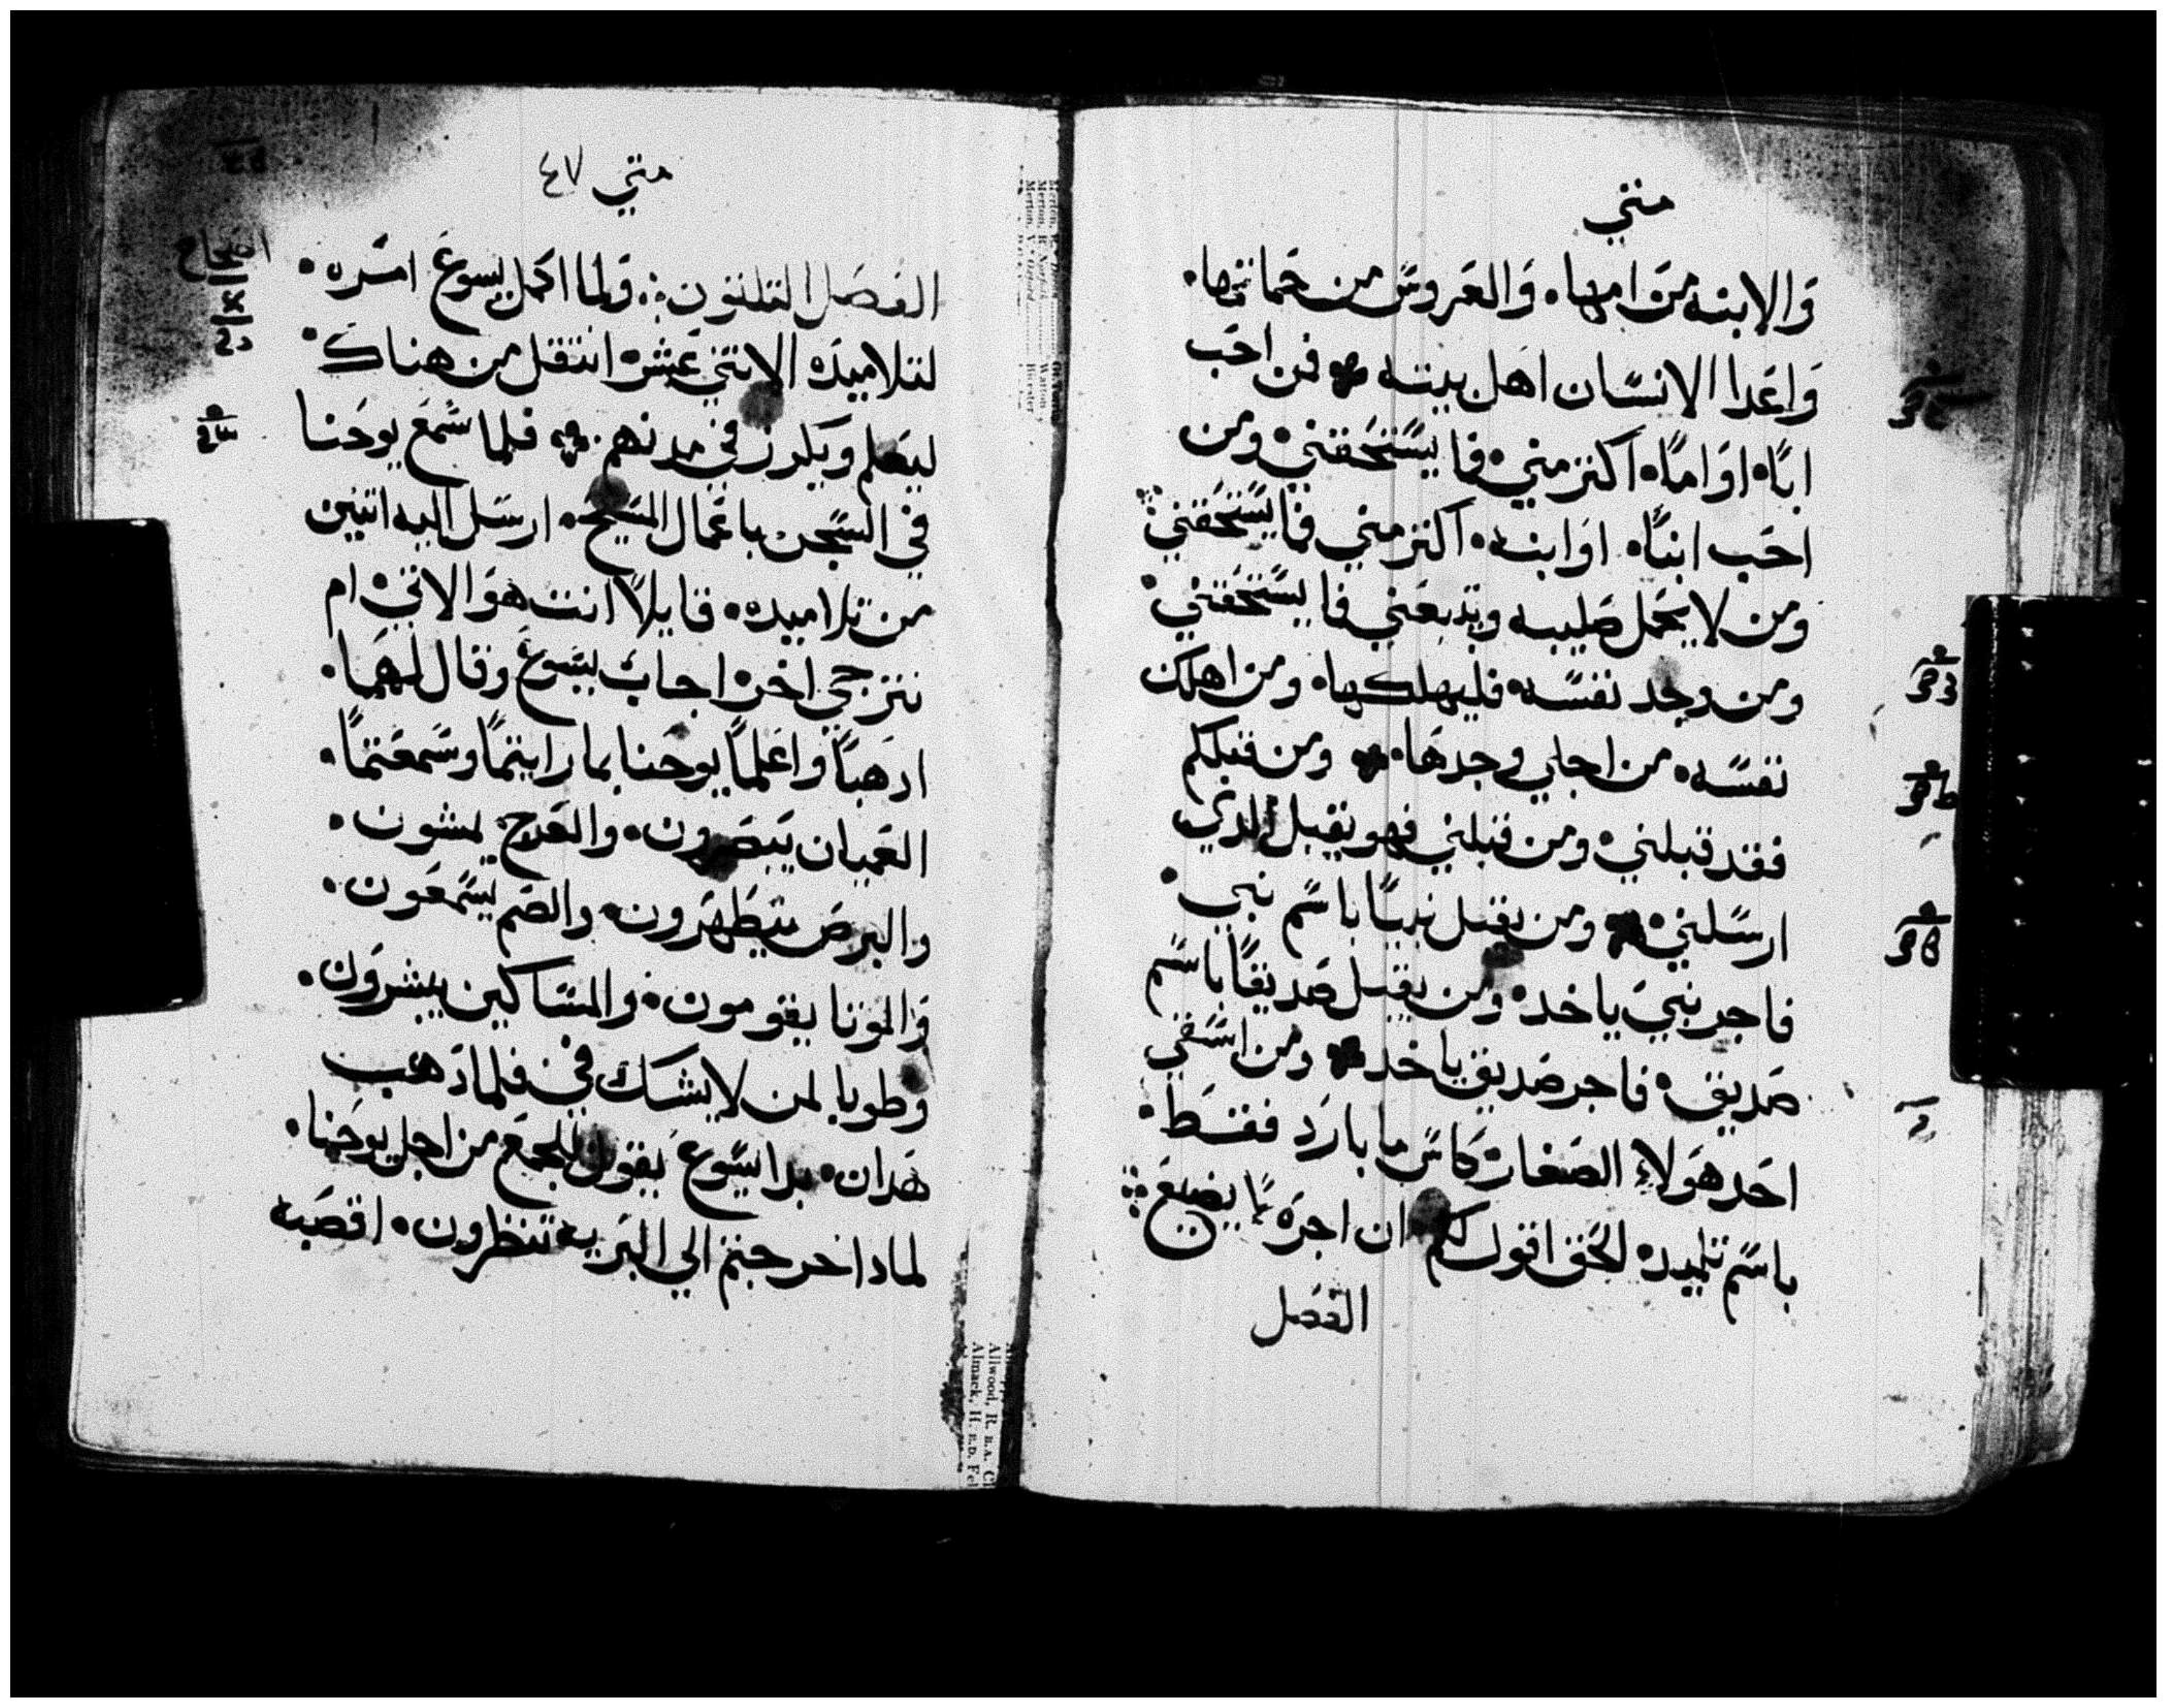 متي
والابنه من امها٠ والعروس من حماتها٠
واعدا الانسان اهل بيته ٠ فمن احب
ابًاه اوامًاه اكتر مني٠ فما يستحقني٠ ومن
احب ابنًاه٠ اوابنه٠ اكتر مني فما يستحقني
ومن لا يحمل صليبه ويتبعني فما يستحقني٠
ومن وجد نفسه٠ فليهلكها٠ ومن اهلك
نفسه٠ من اجلي وجدها٠ ومن قبلكم
فقد قبلني٠ ومن قبلني فهو يقبل الدي
ارسلني٠ ومن يقبل نبيًا باسم نبي٠
فاجر نبي ياخد٠ ومن يقبل صديقًا باسم
صديق٠ فاجر صديق ياخد٠ ومن اسقي
احد هولاء الصغار كاس ما بارد فقط٠
باسم تلميد٠ الحق اقول لكم ان اجره لا يضيع
الفصل
متي ٤٧
الفصل التلتون ولما اكمل يسوع امره٠
لتلاميده الاتني عشر انتقل من هناك٠
ليعلم ويكرز في مدنهم٠ فلما سمع يوحنا
في السجن باعمال المسيح٠ ارسل اليه اتنين
من تلاميده٠ قايلًا انت هو الاتي٠ ام
نترجي اخر٠ اجاب يسوع وقال لهما٠
ادهبًا واعلمًا يوحنا بما رايتمًا وسمعتمًا٠
العميان يبصرون٠ والعرج يمشون٠
والبرص يتطهرون٠ والصم يسمعون٠
والموتا يقومون٠ والمساكين يبشرون٠
وطوبا لمن لا يشك في٠ فلما دهب
هدان٠ بدا يسوع يقول للجمع من اجل يوحنا٠
لمادا خرجتم الي البريه تنظرون٠ اقصبه
اصحاح